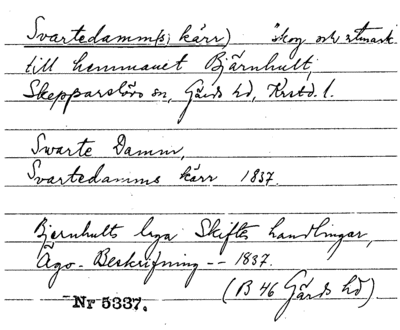 Svartedamm(s, kärr) skog och utmark
till hemmanet Bjärnhult,
Skepparslövs sn, Gärds hd, Krstd. l.
Swarte Damm,
Svartedamms kärr 1837.
Bjernhults laga Skiftes handlingar,
Ägo-Beskrifning -- 1837.
(B 46 Gärds hd).
Nr 5337.